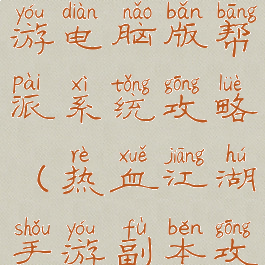 yóu diàn nǎo bǎn bāng
游电脑版帮
pài xì tǒng gōng lüè
派系统攻略
rè xuě jiāng hú
（热血江湖
shǒu yóu fù běn gōng
手游副本攻